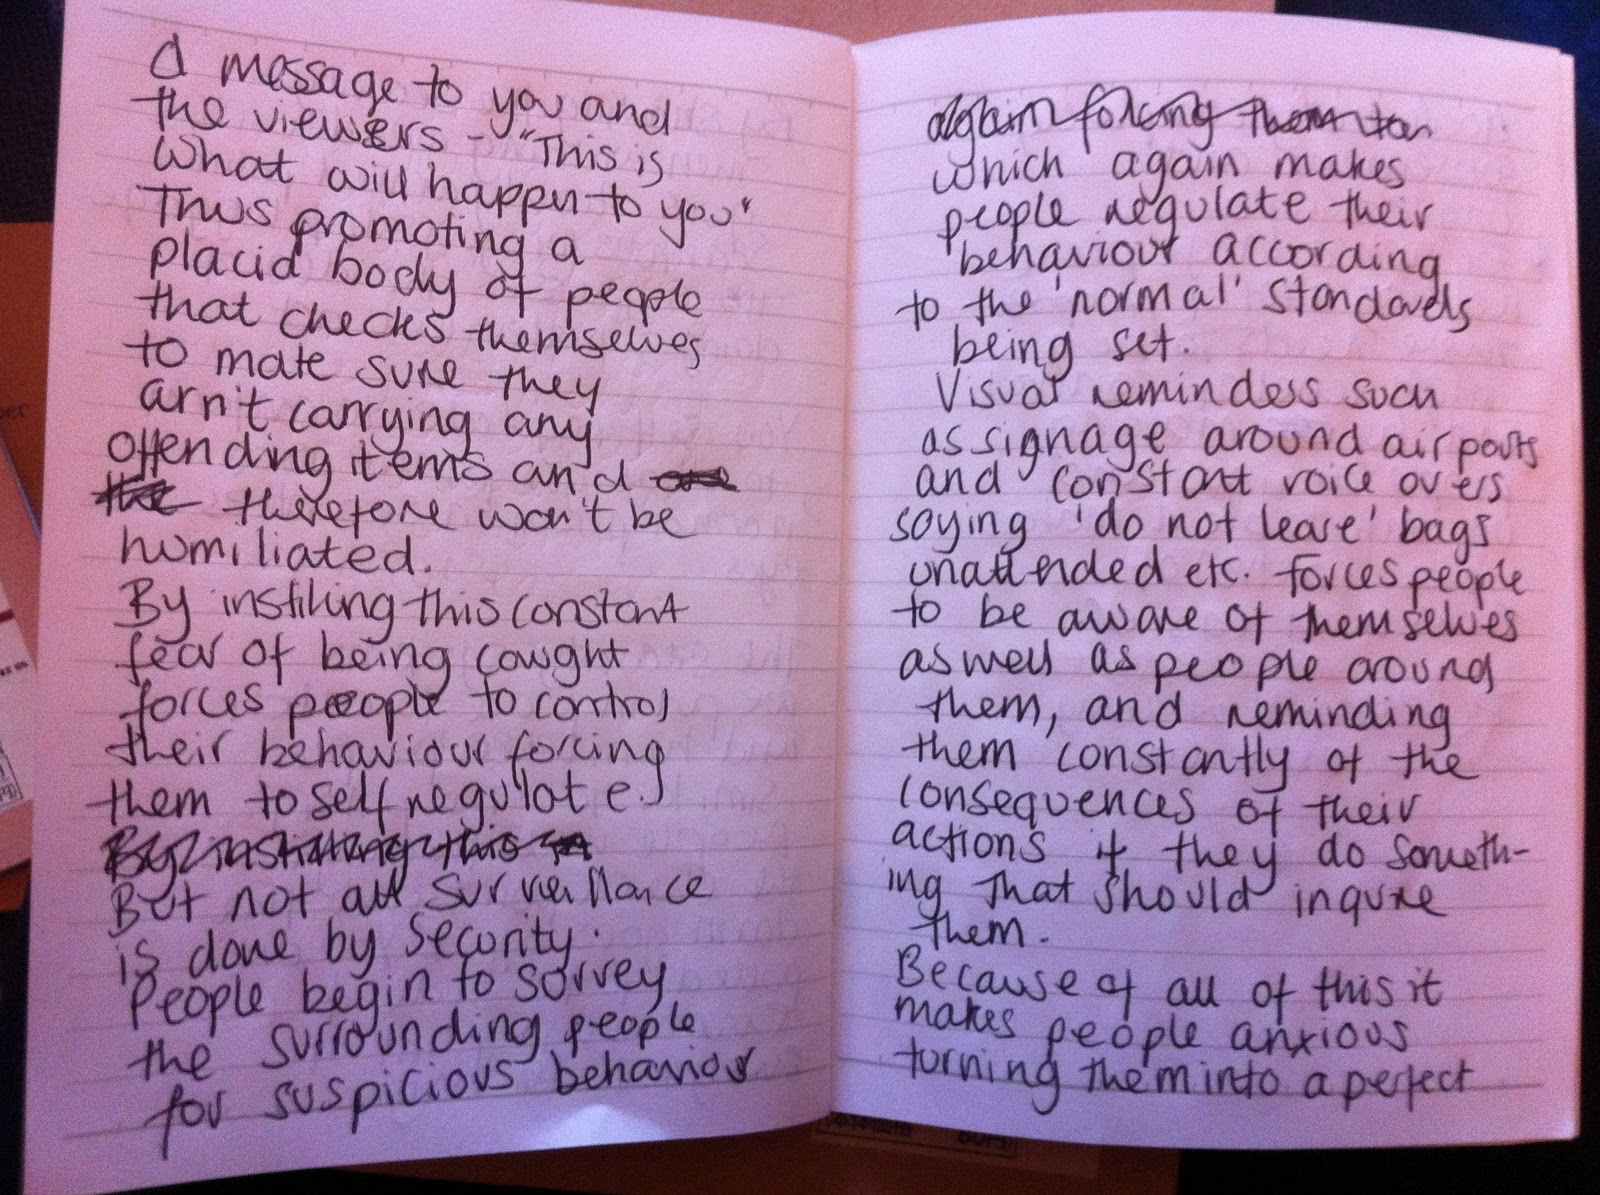 A message to you and
the viewers - "This is
what will happen to you"
Thus promoting a
placid body of people
that checks themselves
to make sure they
arn't carrying any
offending items and
therefore won't be
humiliated.
By instiling this constant
fear of being cawght
forces people to control
their behaviour forcing
them to self regulate.
By instilling this
But not all surveillance
is done by security.
People begin to survey
the surrounding people
for suspicious behaviour
again forcing them to
which again makes
people regulate their
behaviour according
to the 'normal' standards
being set.
Visual reminders such
as signage around airports
and constant voice overs
saying 'do not leave' bags
unattended etc. forces people
to be aware of themselves
as well as people around
them, and reminding
them constantly of the
consequences of their
actions if they do someth-
ing that should inqure
them.
Because of all of this it
makes people anxious
turning them into a perfect